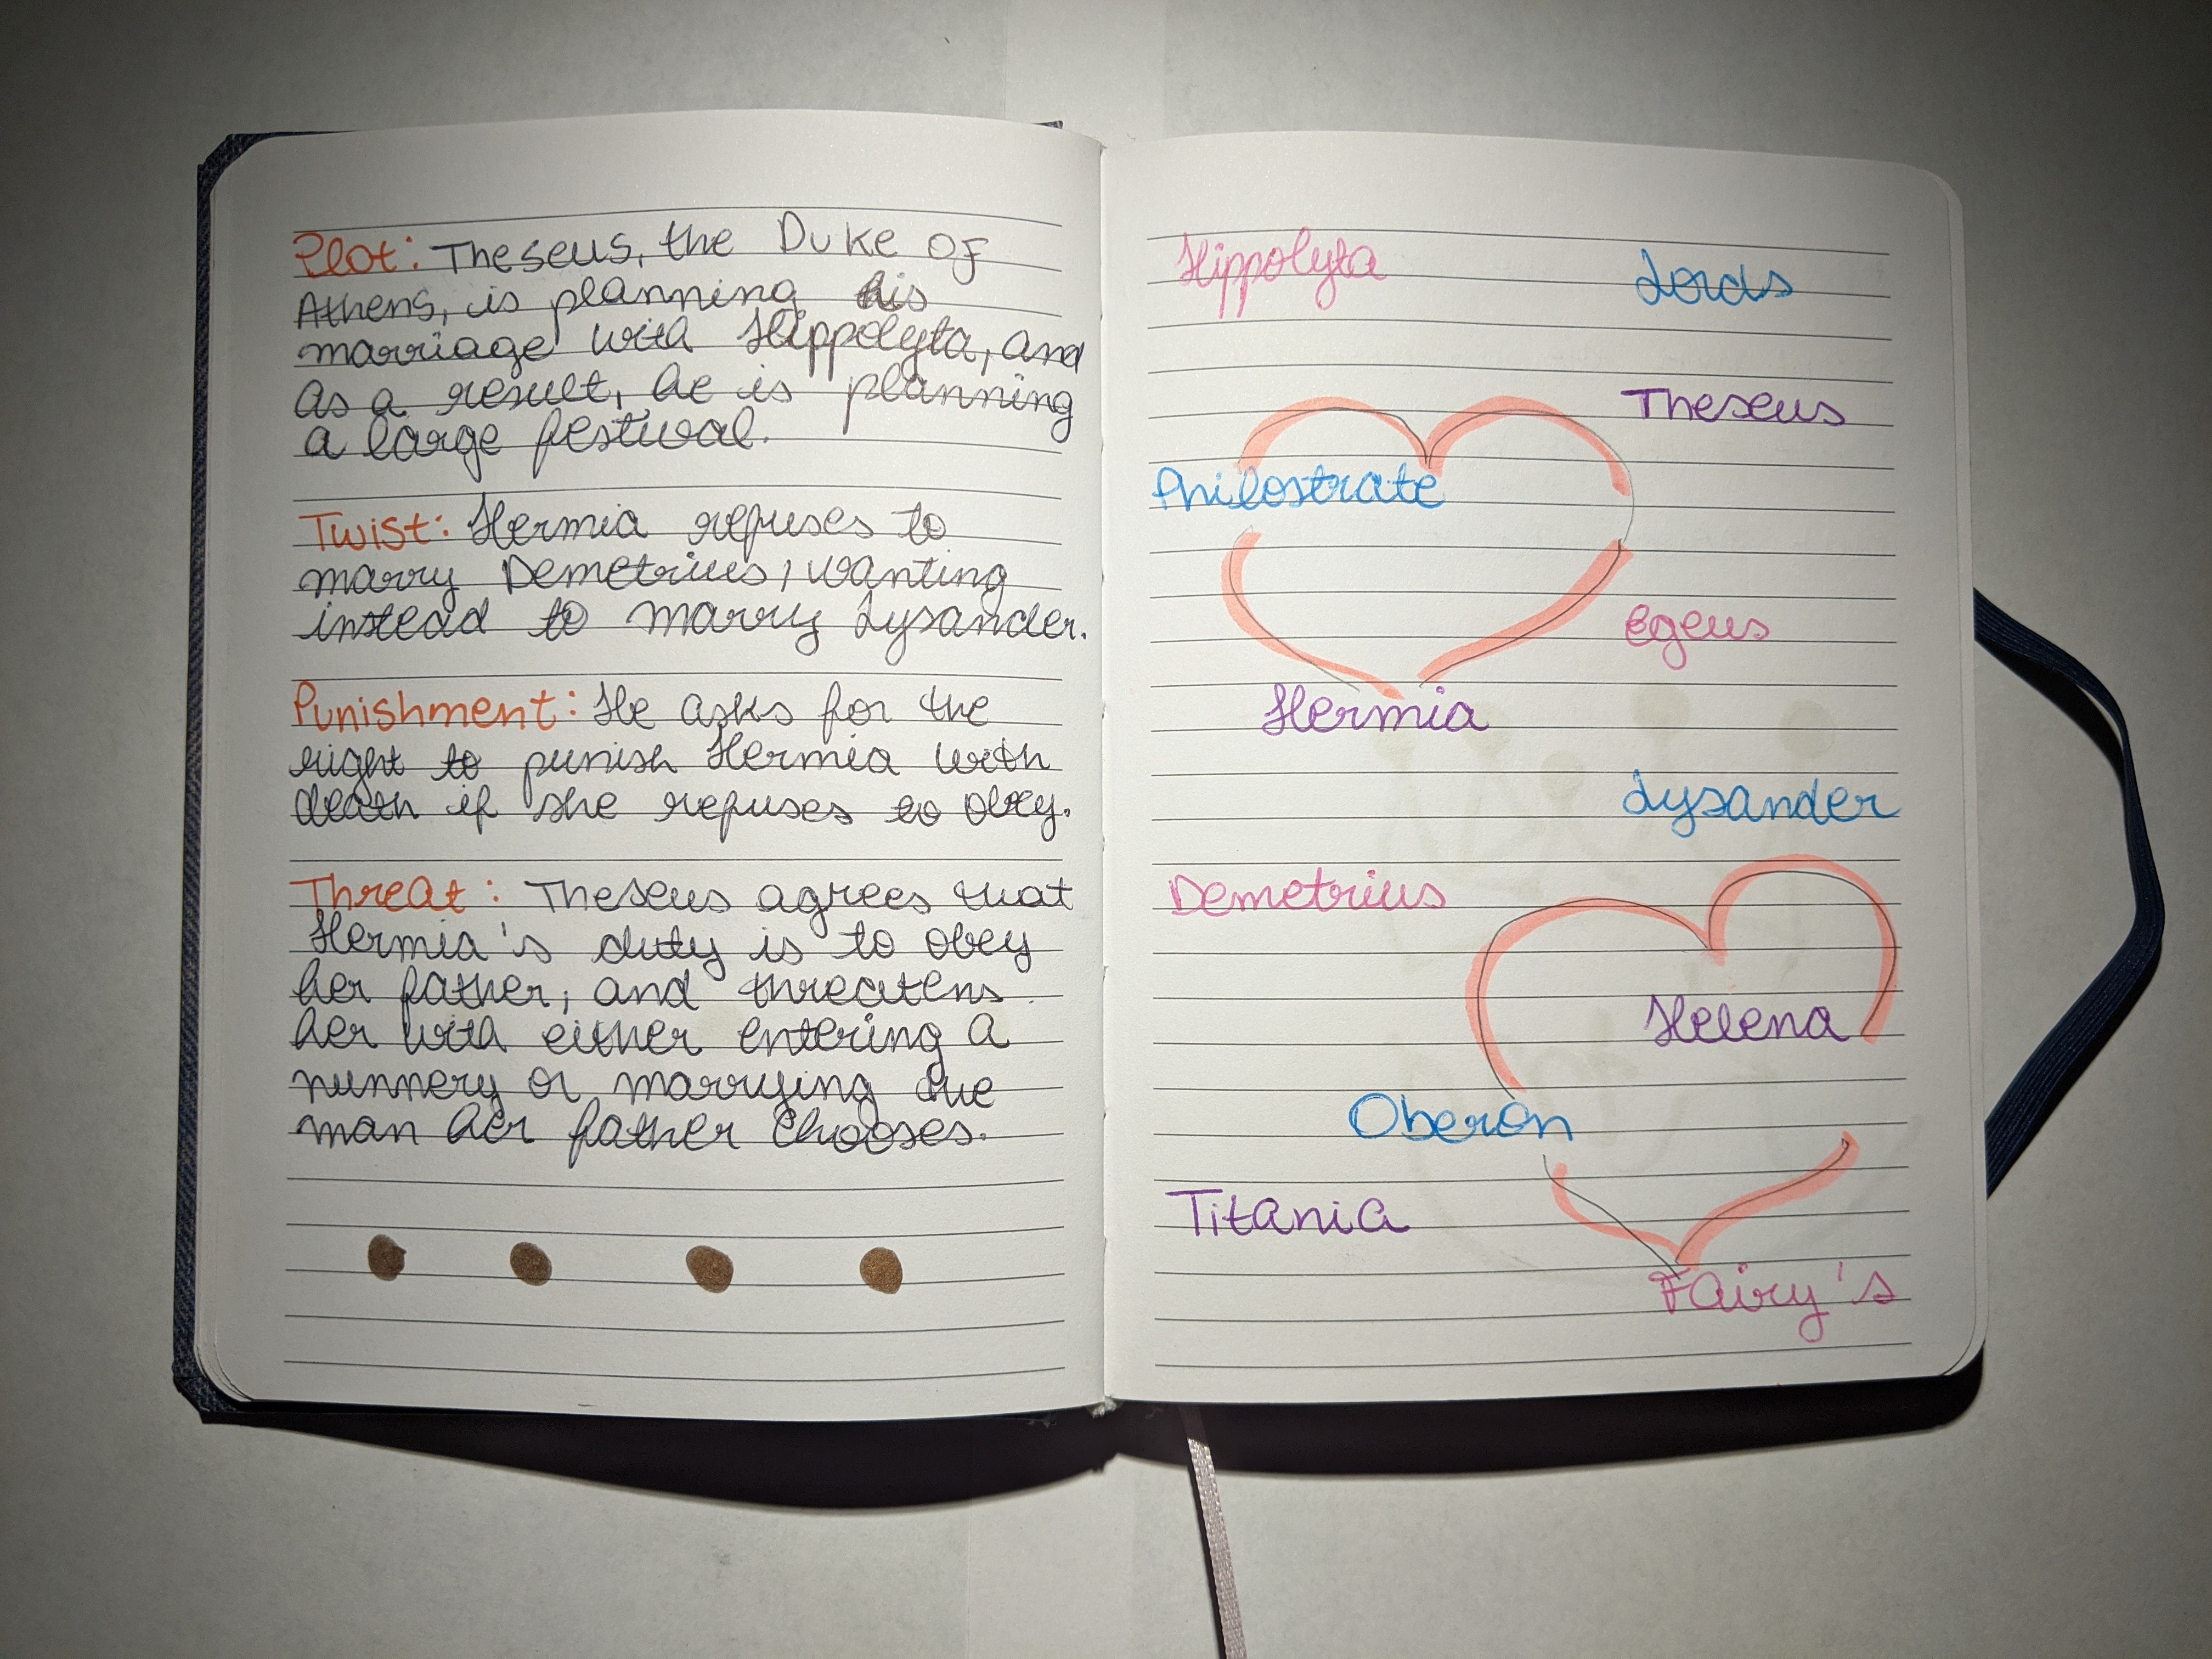 Plot: Theseus, the Duke of
Athens, is planning his
marriage with Hippolyta, and
as a result, he is planning
a large festival.
Twist: Hermia refuses to
marry Demetrius, wanting
instead to marry Lysander.
Punishment: He asks for the
right to punish Hermia with
death if she refuses to obey.
Threat: Theseus agrees that
Hermia's duty is to obey
her father, and threatens
her with either entering a
nunnery or marrying the
man her father chooses.
Hippolyta
Lords
Theseus
Philostrate
Egeus
Hermia
Lysander
Demetrius
Helena
Oberon
Titania
Fairy's